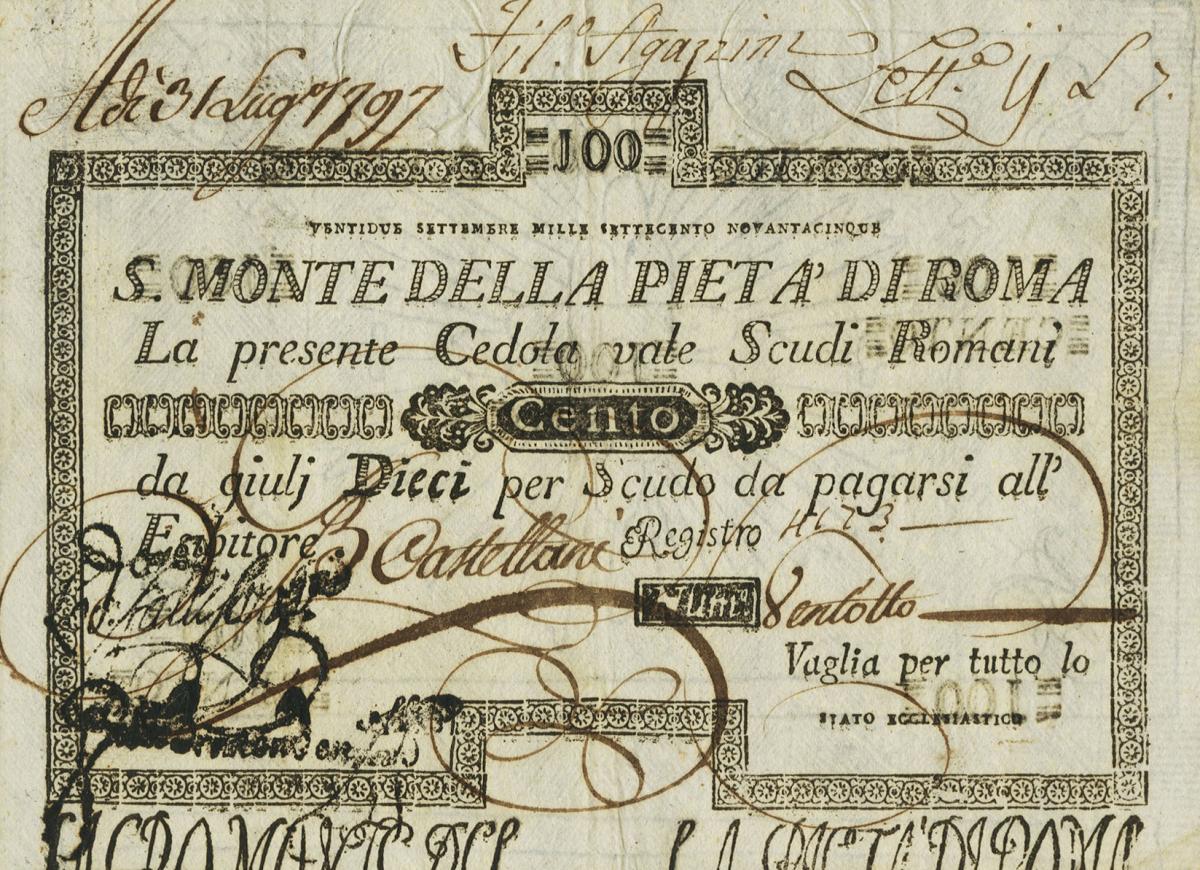 Fil.º Agazzini Lett.ª
Adi 31 Lugº 1797
100
VENTIDUE SETTEMBRE MILLE SETTECENTO NOVANTACINQUE
S. MONTE DELLA PIETA' DI ROMA
La presente Cedola vale Scudi Romani
Cento
da giulj Dieci per Scudo da pagarsi all'
Esibitore. B Castellani Registro 4173
Ventotto
Vaglia per tutto lo
STATO ECCLESIASTICO
100